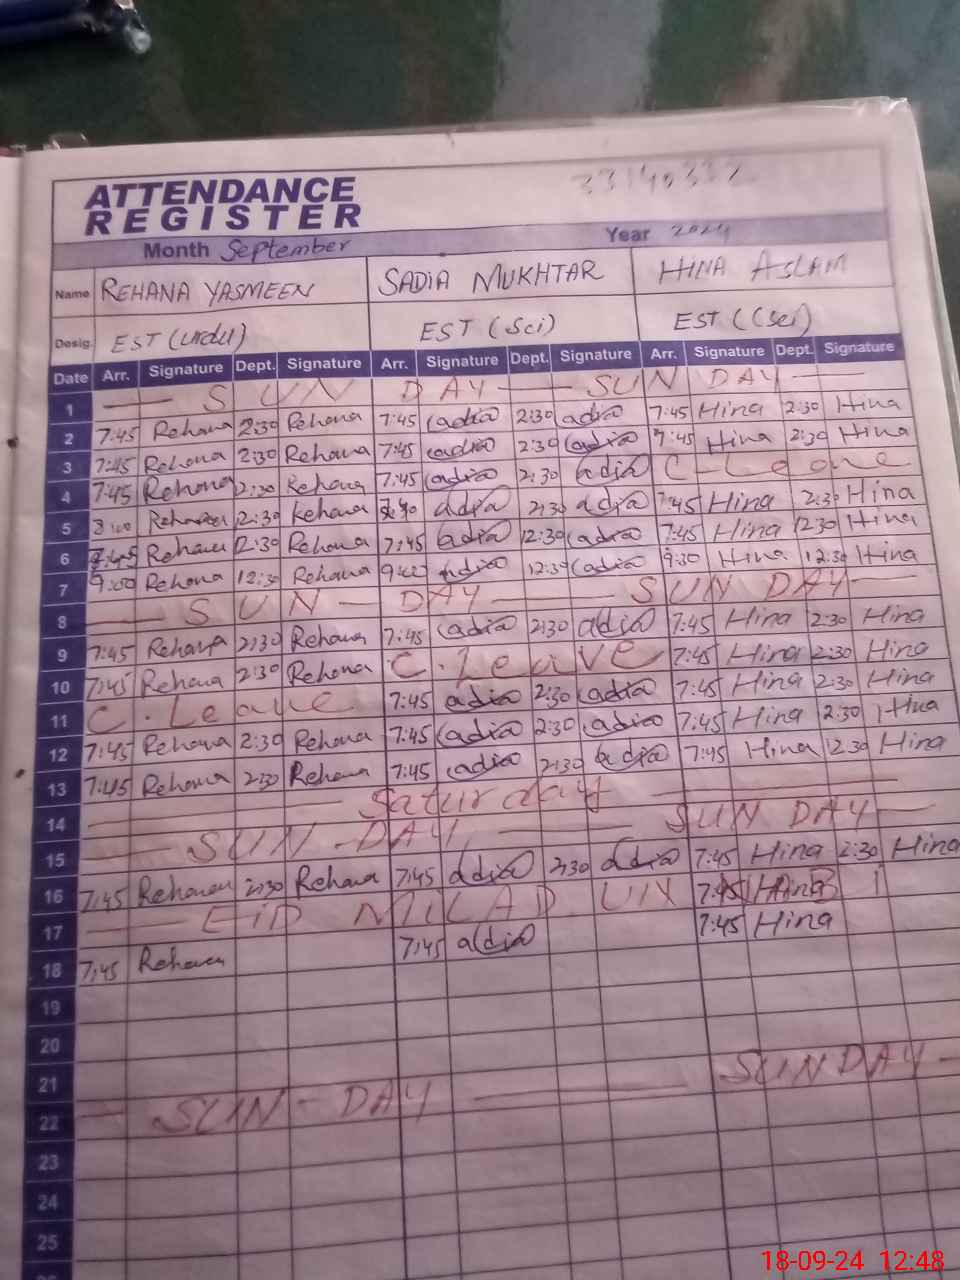 ATTENDANCE
REGISTER
33140332
Month September Year 2024
Name REHANA YASMEEN SADIA MUKHTAR HINA ASLAM
Desig. EST (urdu) EST (Sci) EST ((Sci)
Date Arr. Signature Dept. Signature Arr. Signature Dept. Signature Arr. Signature Dept. Signature
1 SUN DAY SUN DAY
2 7:45 Rehana 2:30 Rehana 7:45 Sadia 2:30 Sadia 7:45 Hina 2:30 Hina
3 7:45 Rehana 2:30 Rehana 7:45 Sadia 2:30 Sadia 7:45 Hina 2:30 Hina
4 7:45 Rehana 2:30 Rehana 7:45 Sadia 2:30 Sadia C-Leave
5 8:00 Rehana 2:30 Rehana Sadia 2:30 Sadia 7:45 Hina 2:30 Hina
6 7:45 Rehana 12:30 Rehana 7:45 Sadia 12:30 Sadia 7:45 Hina 12:30 Hina
7 9:00 Rehana 12:30 Rehana 9:00 Sadia 12:30 Sadia 9:30 Hina 12:30 Hina
8 SUN-DAY SUN DAY
9 7:45 Rehana 2:30 Rehana 7:45 Sadia 2:30 Sadia 7:45 Hina 2:30 Hina
10 7:45 Rehana 2:30 Rehana C.Leave 7:45 Hina 2:30 Hina
11 C.Leave 7:45 Sadia 2:30 Sadia 7:45 Hina 2:30 Hina
12 7:45 Rehana 2:30 Rehana 7:45 Sadia 2:30 Sadia 7:45 Hina 2:30 Hina
13 7:45 Rehana 2:30 Rehana 7:45 Sadia 2:30 Sadia 7:45 Hina 12:30 Hina
14 Saturday
15 SUN-DAY SUN DAY
16 7:45 Rehana 2:30 Rehana 7:45 Sadia 2:30 Sadia 7:45 Hina 2:30 Hina
17 EID MILAD UN 7:45 Hina
18 7:45 Rehana 7:45 Sadia 7:45 Hina
19
20
21
22 SUN-DAY SUNDAY
23
24
25
18-09-24 12:48